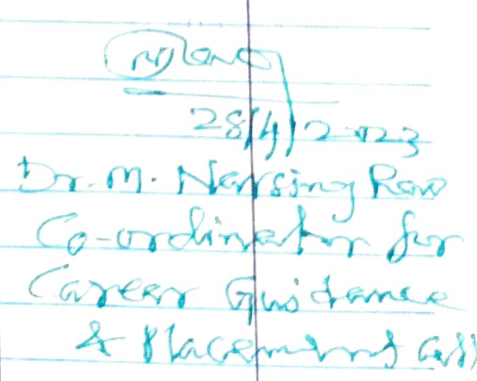 28/4/2023
Dr. M. Narsing Rao
Co-ordinator for
Career Guidance
& Placement Cell